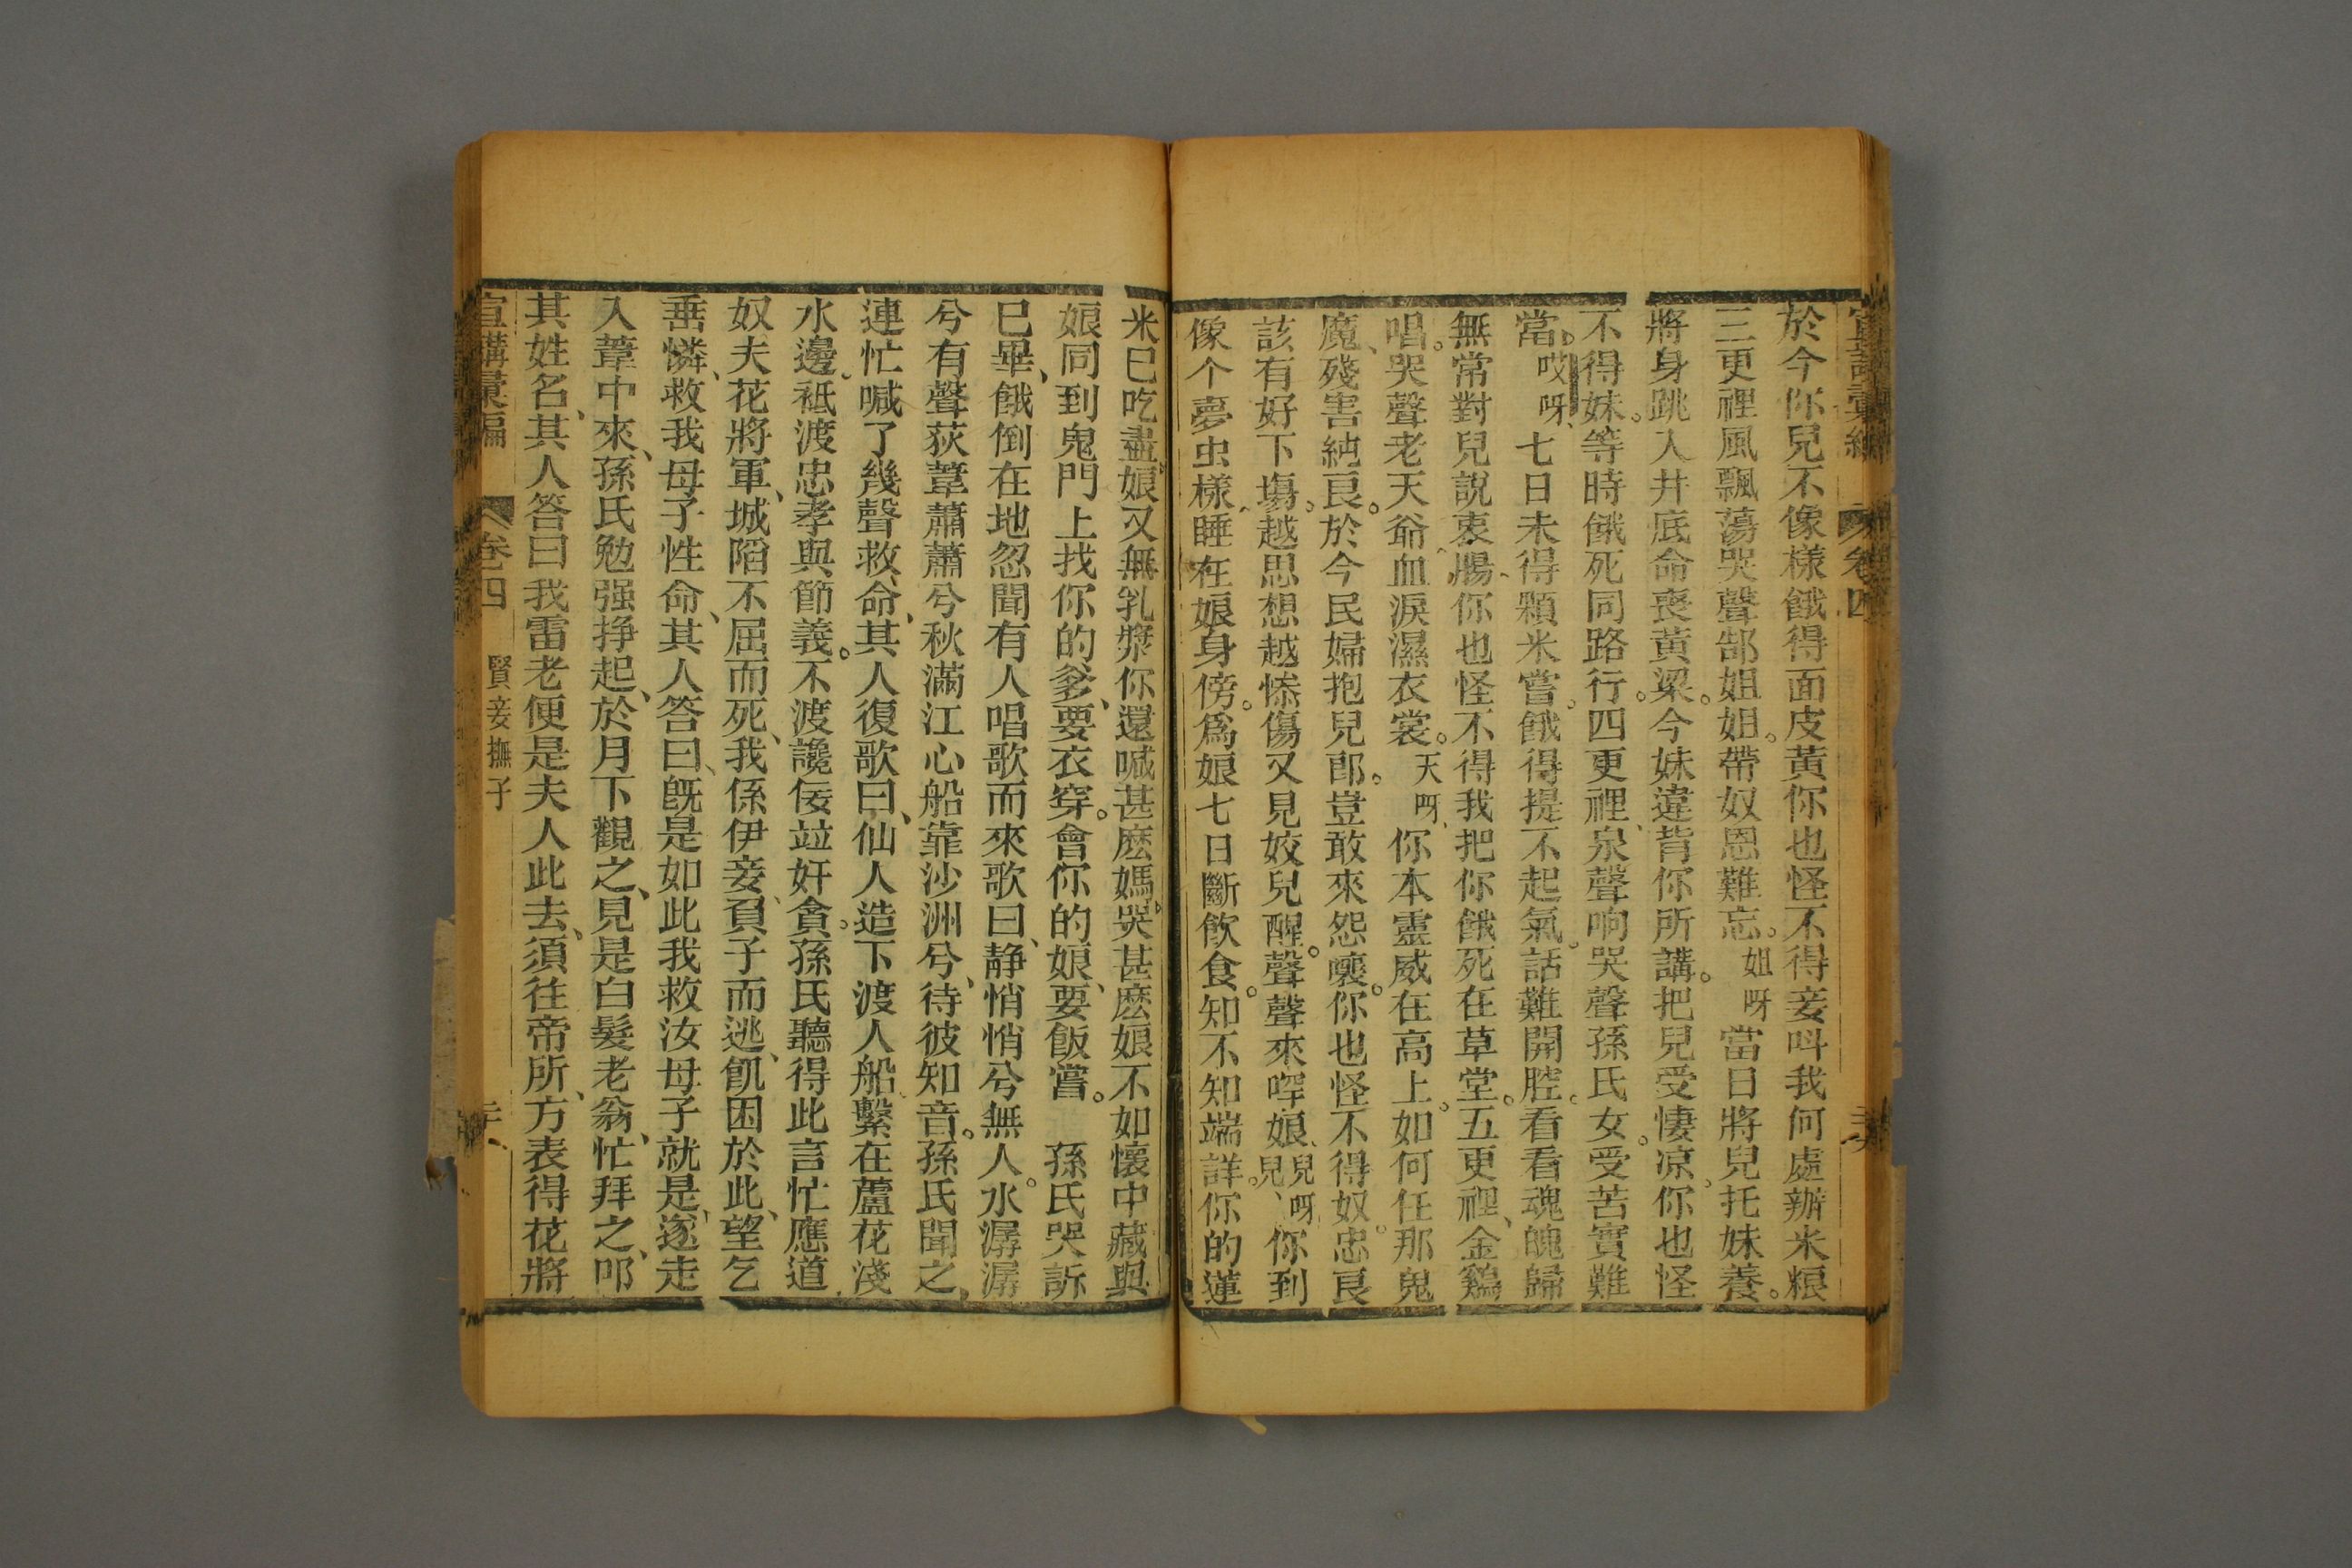 於今你兒不像樣餓得面皮黃你也怪不得妾呌我何處辦米粮
三更裡風飄蕩哭聲郜姐姐。帶奴恩難忘。姐呀當日將兒托妹養。
將身跳入井底命喪黃梁。今妹違背你所講。把兒受悽凉、你也怪
不得妹。等時餓死同路行。四更裡、泉聲响哭聲孫氏女。受苦實難
當。哎呀、七日未得顆米嘗。餓得提不起氣。話難開腔。看看魂魄歸
無常對兒説衷腸、你也怪不得我把你餓死在草堂。五更裡、金鷄
唱。哭聲老天爺血淚濕衣裳。天呀、你本靈威在高上。如何任那鬼
魔、殘害純良。於今民婦抱兒郎。豈敢來怨㦡。你也怪不得奴。忠良
該有好下塲。越思想越慘傷又見姣兒醒。聲聲來喤娘、兒呀兒、你到
像个夢虫樣、睡在娘身傍。爲娘七日斷飲食。知不知端詳。你的蓮
米已吃盡。娘又無乳漿你還喊甚麽媽。哭甚麽娘不如懷中藏與
娘同到鬼門上找你的爹、要衣穿。會你的娘、要飯嘗。 孫氏哭訴
已畢、餓倒在地忽聞有人唱歌而來歌曰、静悄悄兮無人。水潺潺
兮有聲荻葦蕭蕭兮秋滿江心船靠沙洲兮、待彼知音。孫氏聞之、
連忙喊了幾聲救命、其人復歌曰、仙人造下渡人船、繫在蘆花淺
水邊。衹渡忠孝與節義。不渡讒佞竝奸貪。孫氏聽得此言忙應道
奴夫花將軍、城陷不屈而死、我係伊妾、負子而逃、飢困於此、望乞
垂憐、救我母子性命、其人答曰、既是如此我救汝母子就是、遂走
入葦中來、孫氏勉强挣起、於月下觀之、見是白髮老翁、忙拜之、叩
其姓名、其人答曰我雷老便是夫人此去、須往帝所、方表得花將
宣講彙編 卷四 賢妾撫子